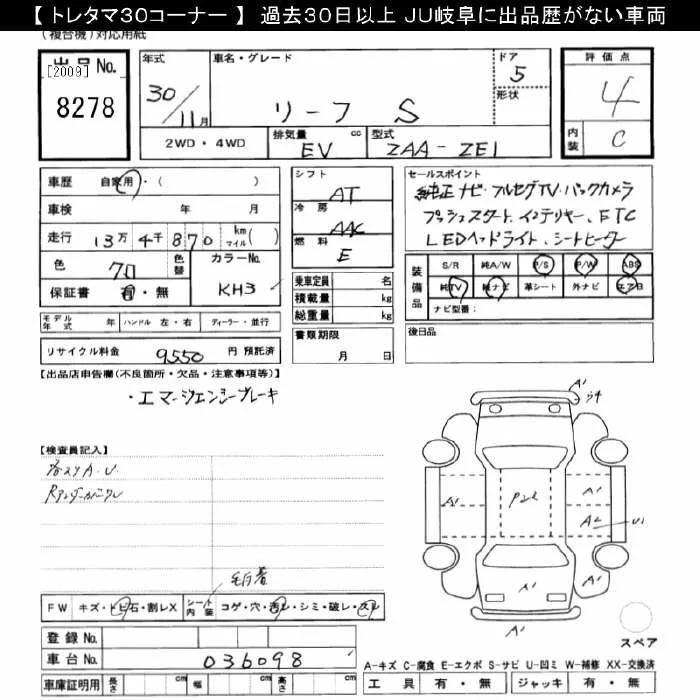 【 トレタマ30コーナー 】 過去30日以上 JU岐阜に出品歴がない車両
（複合機）対応用紙
出品No.
[2009]
8278
年式
30/11月
車名・グレード
リーフ S
ドア
5
形状
評価点
4
内装
C
2WD・4WD
排気量 cc
EV
型式
ZAA-ZE1
車歴 自家用・( )
車検 年 月
走行 13万 4千 870 km マイル( )
色
色替
カラーNo.
KH3
保証書 有・無
シフト
AT
冷房
AAC
燃料
E
乗車定員 名
積載量 kg
総重量 kg
書類期限
月 日
セールスポイント
純正ナビ・フルセグTV・バックカメラ
プッシュスタート、インテリキー、ETC
LEDヘッドライト、シートヒーター
装備品
S/R 純A/W P/S P/W ABS
純TV 純ナビ 革シート 外ナビ エアB
ナビ型番：
後日品
モデル年式 年 ハンドル 左・右 ディーラー・並行
リサイクル料金 9550 円 預託済
【出品店申告欄(不良箇所・欠品・注意事項等)】
・エマージェンシーブレーキ
【検査員記入】
各スリA.U
FW キズ・トビ石・割レX
シート内装 コゲ・穴・汚レ・シミ・破レ・スレ
登録No.
車台No. 036098
車庫証明用 長さ cm 幅 cm 高さ cm
A1
A1
A1
A2
U1
A1
A1
A1
スペア
A-キズ C-腐食 E-エクボ S-サビ U-凹ミ W-補修 XX-交換済
工具 有・無 ジャッキ 有・無